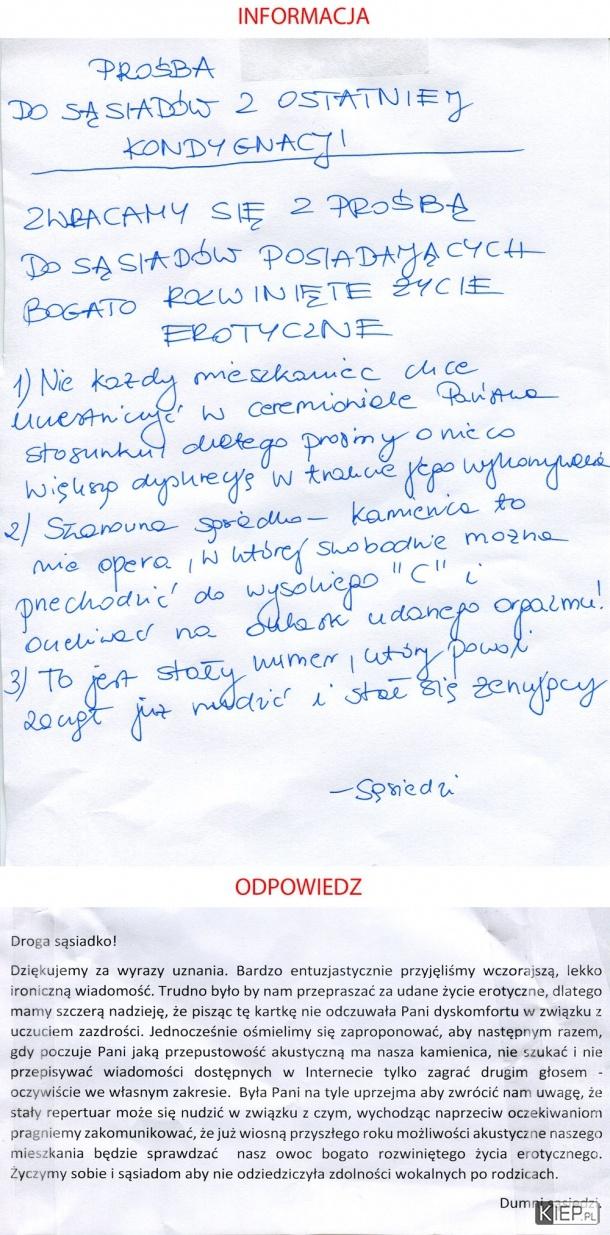 INFORMACJA
PROŚBA
DO SĄSIADÓW Z OSTATNIEJ
KONDYGNACJI
ZWRACAMY SIĘ Z PROŚBĄ
DO SĄSIADÓW POSIADAJĄCYCH
BOGATO ROZWINIĘTE ŻYCIE
EROTYCZNE
1) Nie każdy mieszkaniec chce
uczestniczyć w ceremoniale Państwa
stosunku dlatego prosimy o nieco
większą dyskrecję w trakcie jego wykonywania
2) Szanowna sąsiadko – kamienica to
nie opera, w której swobodnie można
przechodzić do wysokiego "C" i
oczekiwać na oklask udanego orgazmu!
3) To jest stały numer, który powoli
zaczął już nudzić i stał się żenujący
– Sąsiedzi
ODPOWIEDZ
Droga sąsiadko!
Dziękujemy za wyrazy uznania. Bardzo entuzjastycznie przyjęliśmy wczorajszą, lekko
ironiczną wiadomość. Trudno było by nam przepraszać za udane życie erotyczne, dlatego
mamy szczerą nadzieję, że pisząc tę kartkę nie odczuwała Pani dyskomfortu w związku z
uczuciem zazdrości. Jednocześnie ośmielimy się zaproponować, aby następnym razem,
gdy poczuje Pani jaką przepustowość akustyczną ma nasza kamienica, nie szukać i nie
przepisywać wiadomości dostępnych w Internecie tylko zagrać drugim głosem -
oczywiście we własnym zakresie. Była Pani na tyle uprzejma aby zwrócić nam uwagę, że
stały repertuar może się nudzić w związku z czym, wychodząc naprzeciw oczekiwaniom
pragniemy zakomunikować, że już wiosną przyszłego roku możliwości akustyczne naszego
mieszkania będzie sprawdzać nasz owoc bogato rozwiniętego życia erotycznego.
Życzymy sobie i sąsiadom aby nie odziedziczyła zdolności wokalnych po rodzicach.
Dumni sąsiedzi.
KIEP.PL